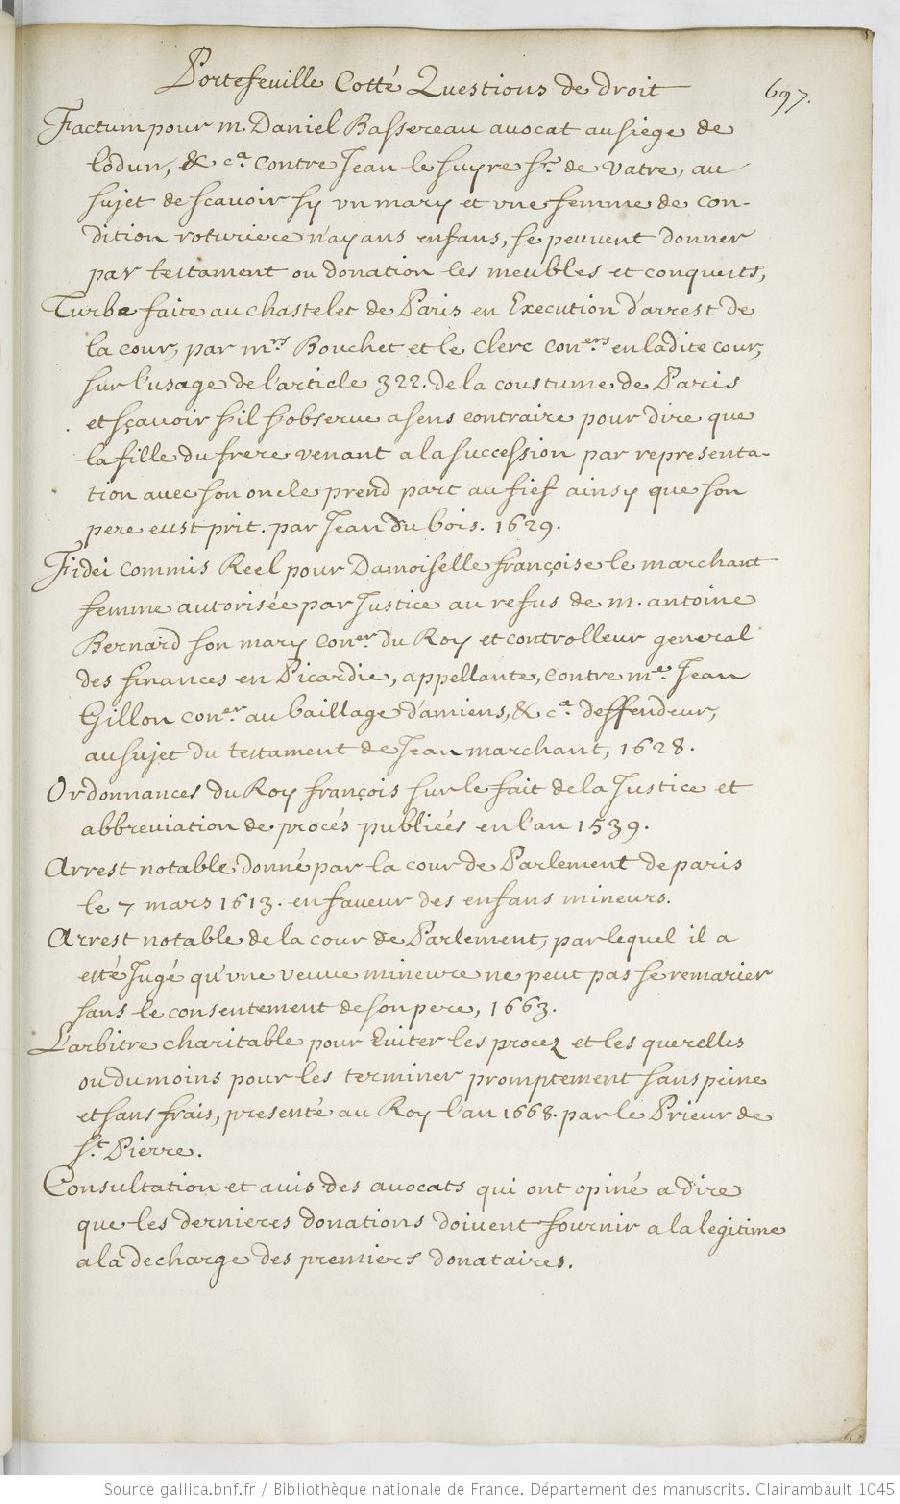 Portefeuille Cotté Questions de droit
697.
Factum pour m. Daniel Bassereau avocat au siege de
lodun, & ca. contre Jean le suyre sr. de vatre, au
sujet de scavoir sy vn mary et vne femme de con-
dition roturiere n'ayans enfans, se peuvent donner
par testament ou donation les meubles et conquests,
Turbe faite au chastelet de Paris en Execution d'arrest de
la cour, par mrs. Bouchet et le Clerc coners en ladite cour,
sur l'usage de l'article 322. de la coustume de Paris
et sçavoir s'il s'observe a sens contraire pour dire que
la fille du frere venant a la succession par representa-
tion avec son oncle prend part au fief ainsy que son
pere eust prit. par Jean du bois. 1629.
Fidei commis Reel pour Damoiselle françoise le marchant
femme autorisée par Justice au refus de m. antoine
Bernard son mary coner. du Roy et controlleur general
des finances en Picardie, appellante, contre me. Jean
Gillon coner. au baillage d'amiens, & ca. deffendeur,
au sujet du testament de Jean marchant, 1628.
Ordonnances du Roy françois sur le fait de la Justice et
abbreviation de procés publiées en l'an 1539.
Arrest notable donné par la cour de Parlement de paris
le 7 mars 1613. en faveur des enfans mineurs.
Arrest notable de la cour de Parlement, par lequel il a
esté Jugé qu'vne veuve mineure ne peut pas se remarier
sans le consentement de son pere, 1663.
L'arbitre charitable pour Euiter les procez et les querelles
ou du moins pour les terminer promptement sans peine
et sans frais, presenté au Roy l'an 1668. par le Prieur de
st. Pierre.
Consultation et avis des avocats qui ont opiné a dire
que les dernieres donations doivent fournir a la legitime
a la decharge des premiers donataires.
Source gallica.bnf.fr / Bibliothèque nationale de France. Département des manuscrits. Clairambault 1045